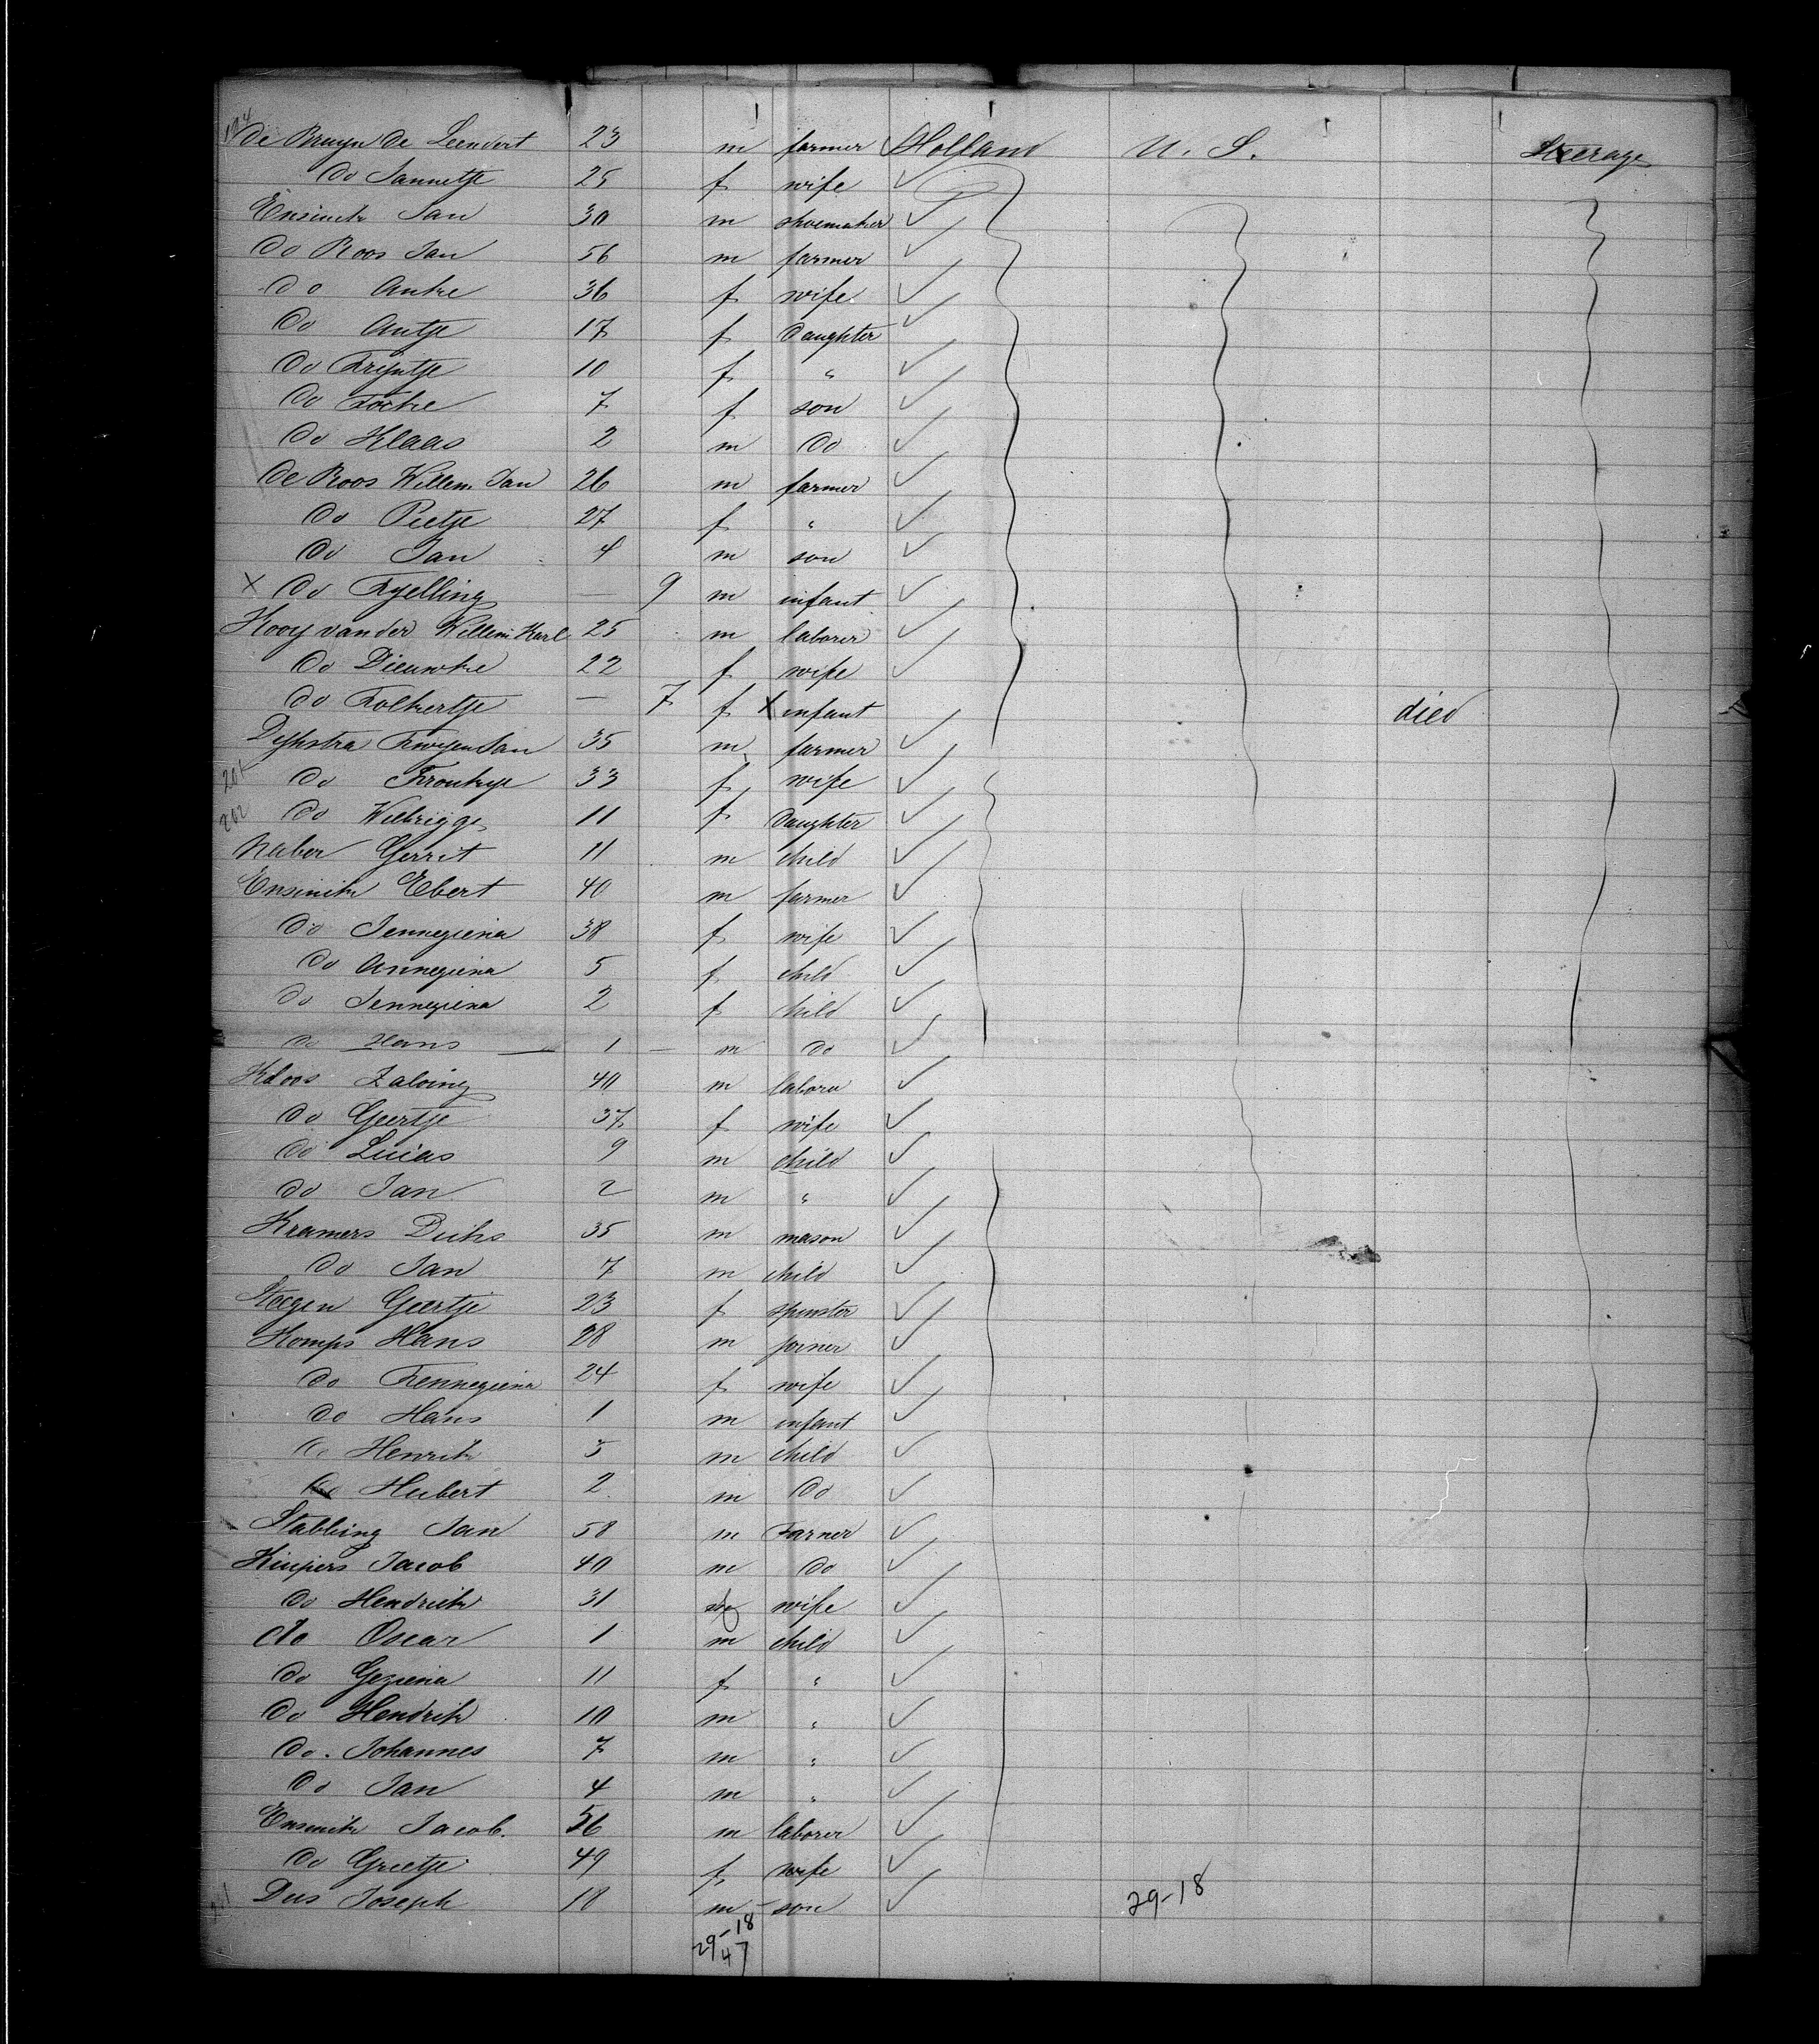 194
De Bruyn De Leendert 23 m farmer Holland U. S. Steerage
Do Jannetje 25 f wife ✓
Ensink Jan 30 m shoemaker ✓
Do Roos Jan 56 m farmer ✓
do Antke 36 f wife ✓
Do Antje 17 f Daughter ✓
Do Tryntje 10 f " ✓
Do Fockke 7 f son ✓
Do Klaas 2 m Do ✓
De Roos Willem Jan 26 m farmer ✓
Do Pietje 27 f " ✓
Do Jan 4 m son ✓
x Do Tyelling — 9 m infant ✓
Kooy van der Willem Karl 25 m laborer ✓
Do Dieuwke 22 f wife ✓
do Folkertje — 7 f x infant died
Dykstra Jan 35 m farmer ✓
201 do Froukje 33 f wife ✓
202 Do Wilbrigge 11 f Daughter ✓
Naber Gerrit 11 m child ✓
Ensink Ebert 40 m farmer ✓
Do Jenneziena 38 f wife ✓
Do Anneziena 5 f child ✓
Do Jenneziena 2 f child ✓
do Hans — 1 — m do ✓
Kdoos 40 m labore ✓
Do Geertje 37 f wife ✓
Do Lucas 9 m child ✓
do Jan 2 m " ✓
Kramers 35 m mason ✓
Do Jan 7 m child ✓
Geertje 23 f spinster ✓
Komps Hans 28 m joiner ✓
do Fenneziena 24 f wife ✓
do Hans 1 m infant ✓
do Henrik 3 m child ✓
do Hubert 2 m Do ✓
Stabbing Jan 58 m Farner ✓
Kuipers Jacob 40 m Do ✓
Do Hendrick 31 f wife ✓
do Oscar 1 m child ✓
do Geziena 11 f " ✓
Do Hendrik 10 m " ✓
Do. Johannes 7 m " ✓
Do Jan 4 m " ✓
Ensink Jacob. 56 m laborer ✓
Do Grietje 49 f wife ✓
Dus Joseph 18 m - son ✓ 29-18
29-18
47